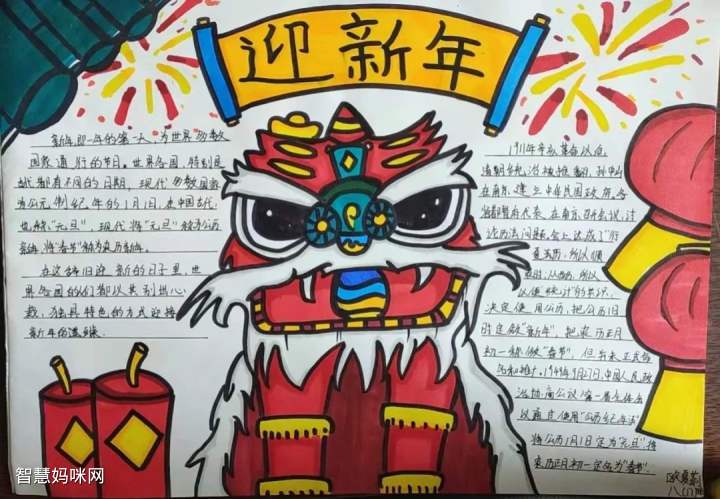 迎新年
新年即一年的第一天,为世界多数
国家通行的节日。世界各国,特别民
族都有不同的日期,现代多数国家
为公元制纪年的1月1日,在中国古代
也称"元旦",现代将"元旦"称为公历
新年,将春节称为农历新年。
在这辞旧迎新的日子里,世
界各国的人们都以其别出心
裁,独具特色的方式迎接
新年的
1911年辛亥革命以后,
清朝统治被推翻,孙中山
在南京建立中华民国政府。各
省都督府代表在南京召开会议,讨
论历法问题。会上达成了"行
夏历,所以顺
农时,从西历,所以
以便统计"的共识,
决定使用公历,把公历1月
1日定做"新年",把农历正月
初一称做"春节",但并未正式
和推广。1949年9月27日,中国人民政
治协商会议第一届全体会
议通过使用"公历纪年法"
将公历1月1日定为"元旦",将
农历正月初一定名为"春节".
智慧妈咪网